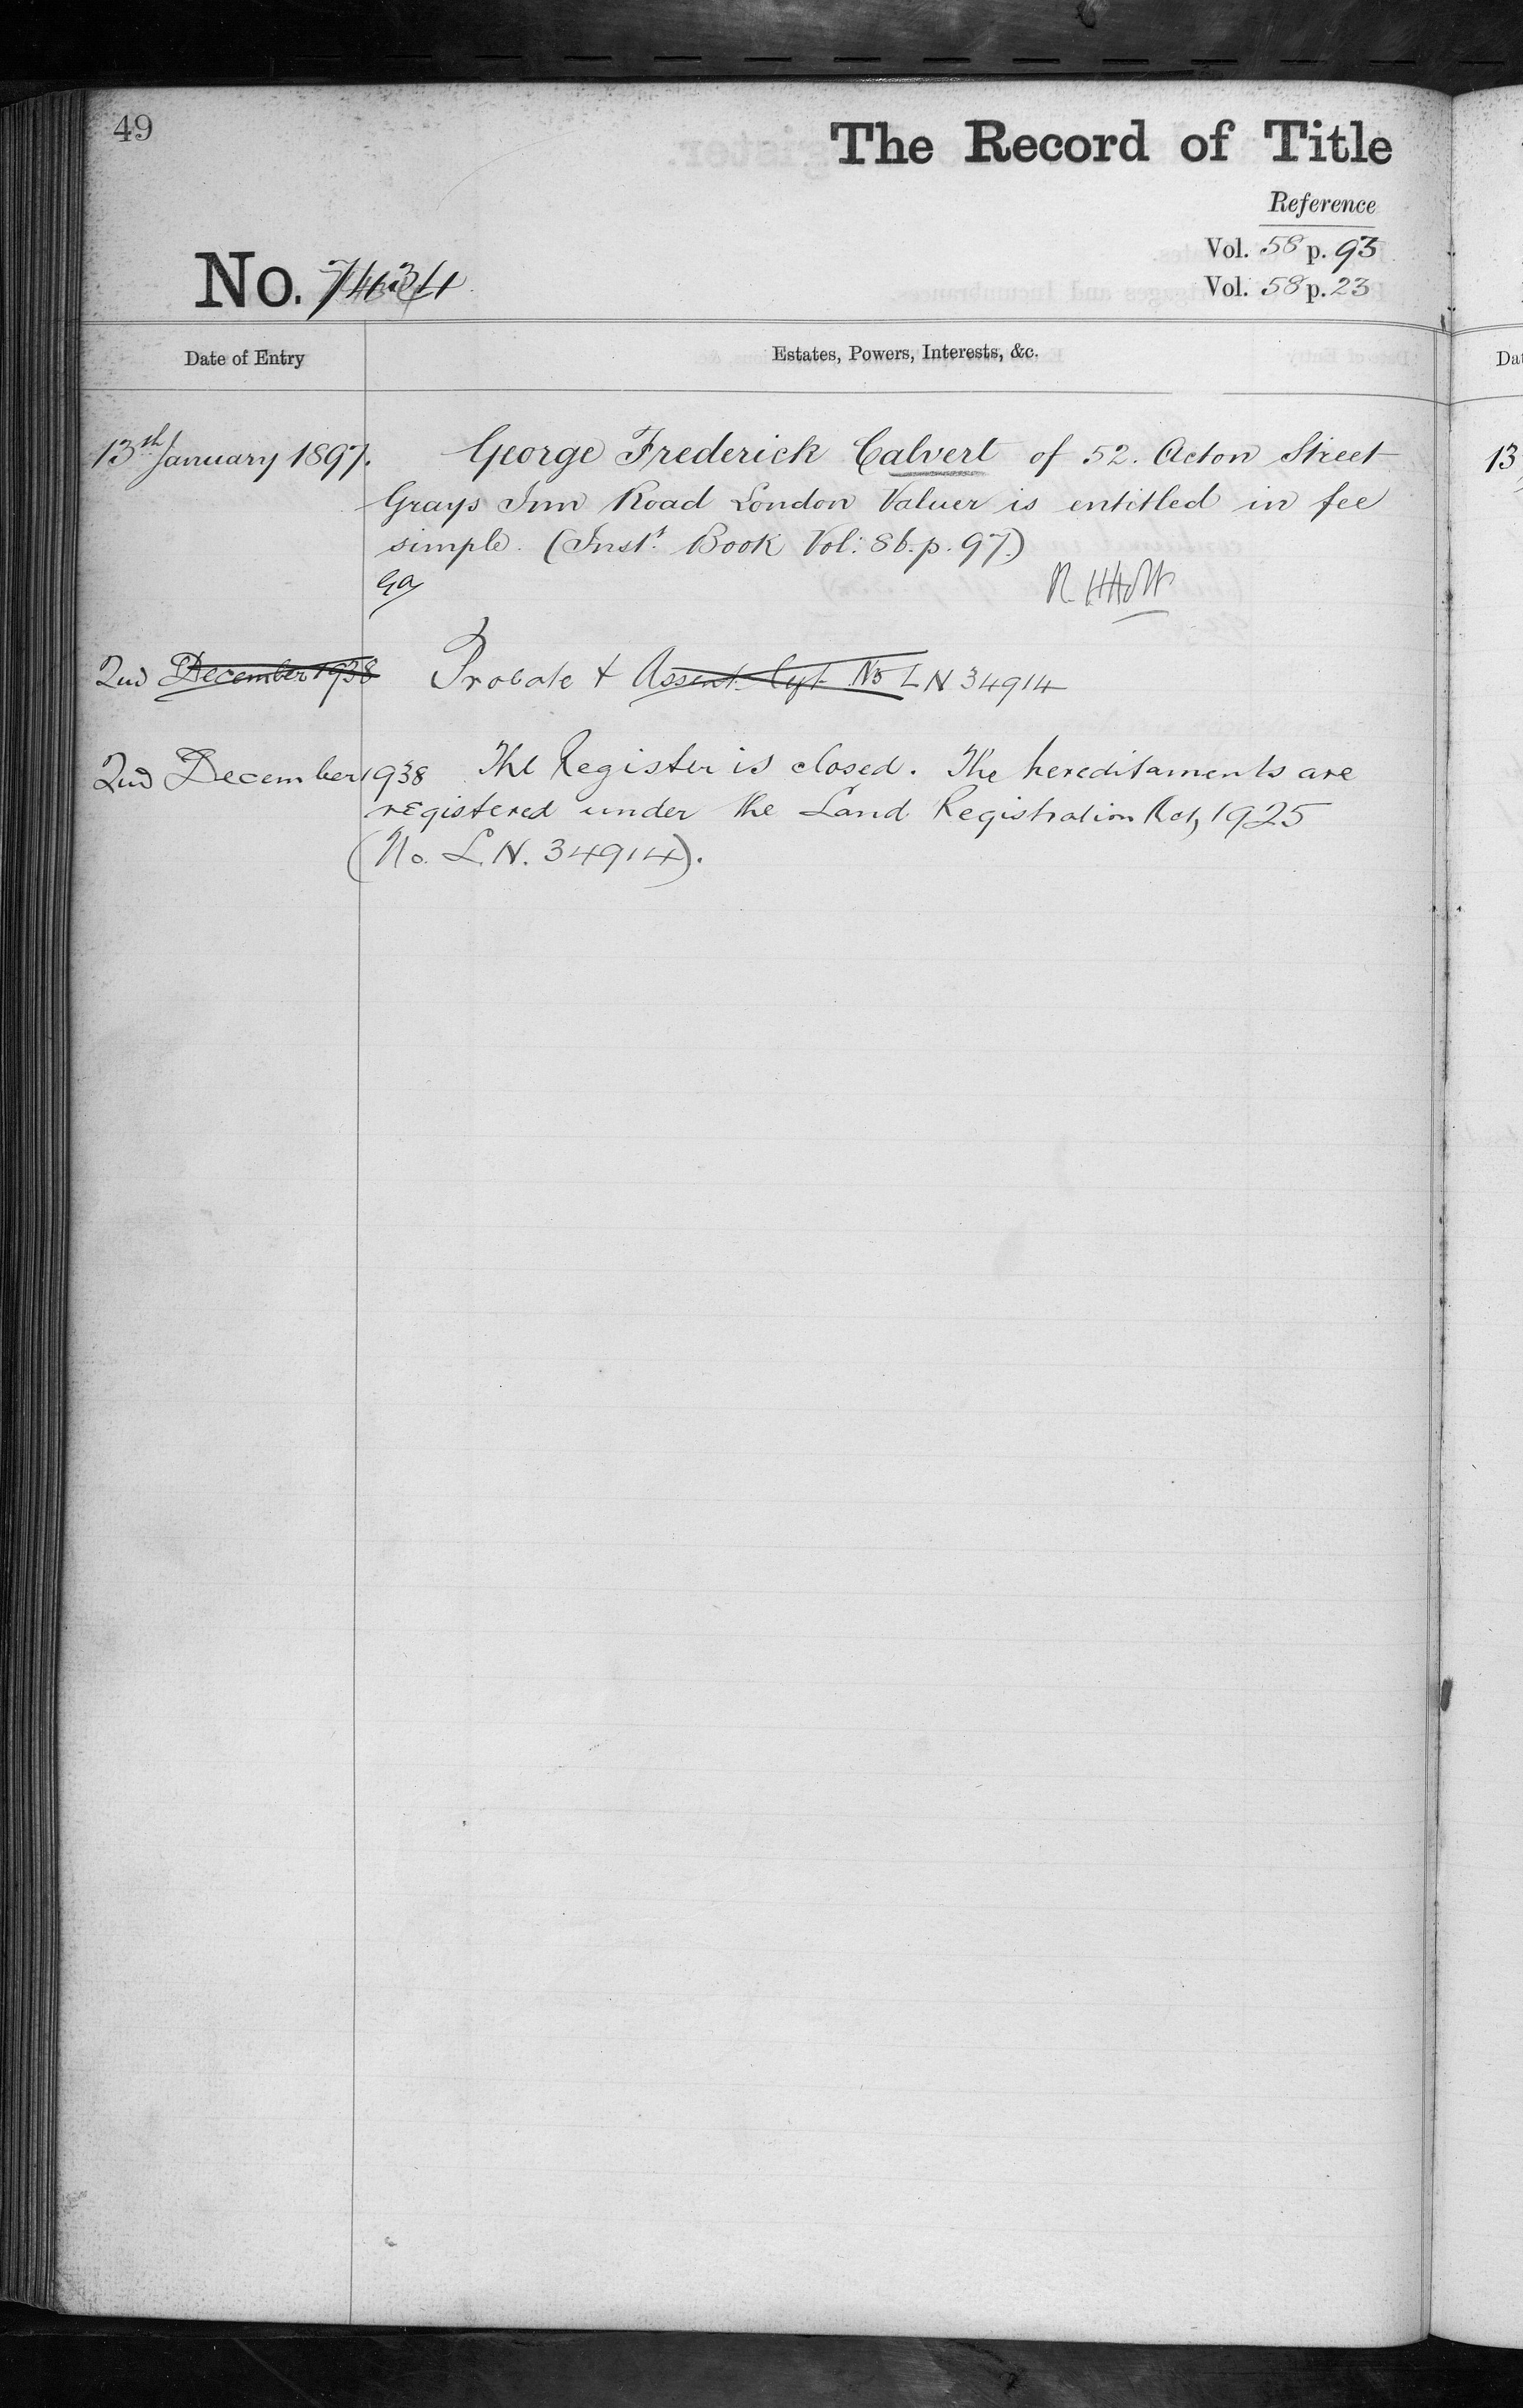 49
The Record of Title
Reference
Vol. 58 p. 93
Vol. 58 p. 23
No.
Date of Entry
Estates, Powers, Interests, &c.
13th January 1897. George Frederick Calvert of 52. Acton Street
Grays Inn Road London Valuer is entitled in fee
simple. (Inst. Book Vol: 86. p. 97.)
2nd December 1938 Probate + Assent No LN 34914
2nd December 1938 The Register is closed. The hereditaments are
registered under the Land Registration Act, 1925
(No. L.N. 34914).
13